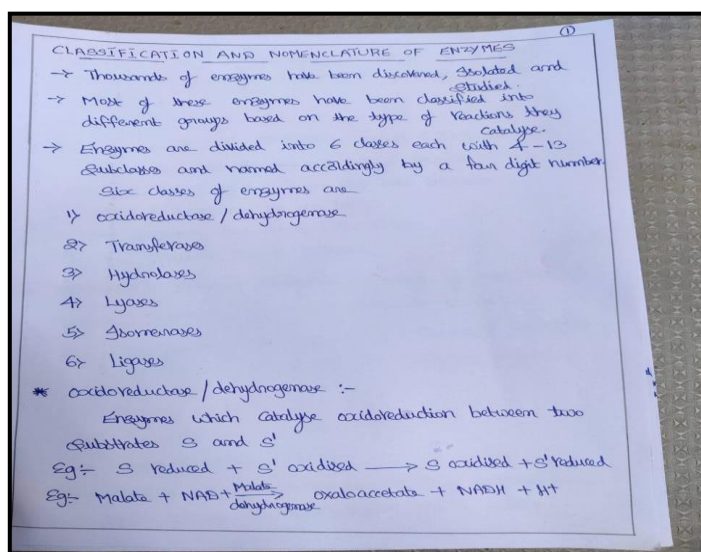 1
CLASSIFICATION AND NOMENCLATURE OF ENZYMES
-> Thousands of enzymes have been discovered, Isolated and
studied.
-> Most of these enzymes have been classified into
different groups based on the type of reactions they
catalyse.
-> Enzymes are divided into 6 classes each with 4-13
Subclasses and named accordingly by a four digit number.
Six classes of enzymes are
1> oxidoreductase / dehydrogenase
2> Transferases
3> Hydrolases
4> Lyases
5> Isomerases
6> Ligases
* oxidoreductase / dehydrogenase :-
Enzymes which catalyse oxidoreduction between two
Substrates S and S'
Eg:- S reduced + S' oxidised ⟶ S oxidised + S' reduced
Eg:- Malate + NAD+ Malate dehydrogenase ⟶ oxaloaccetate + NADH + H+